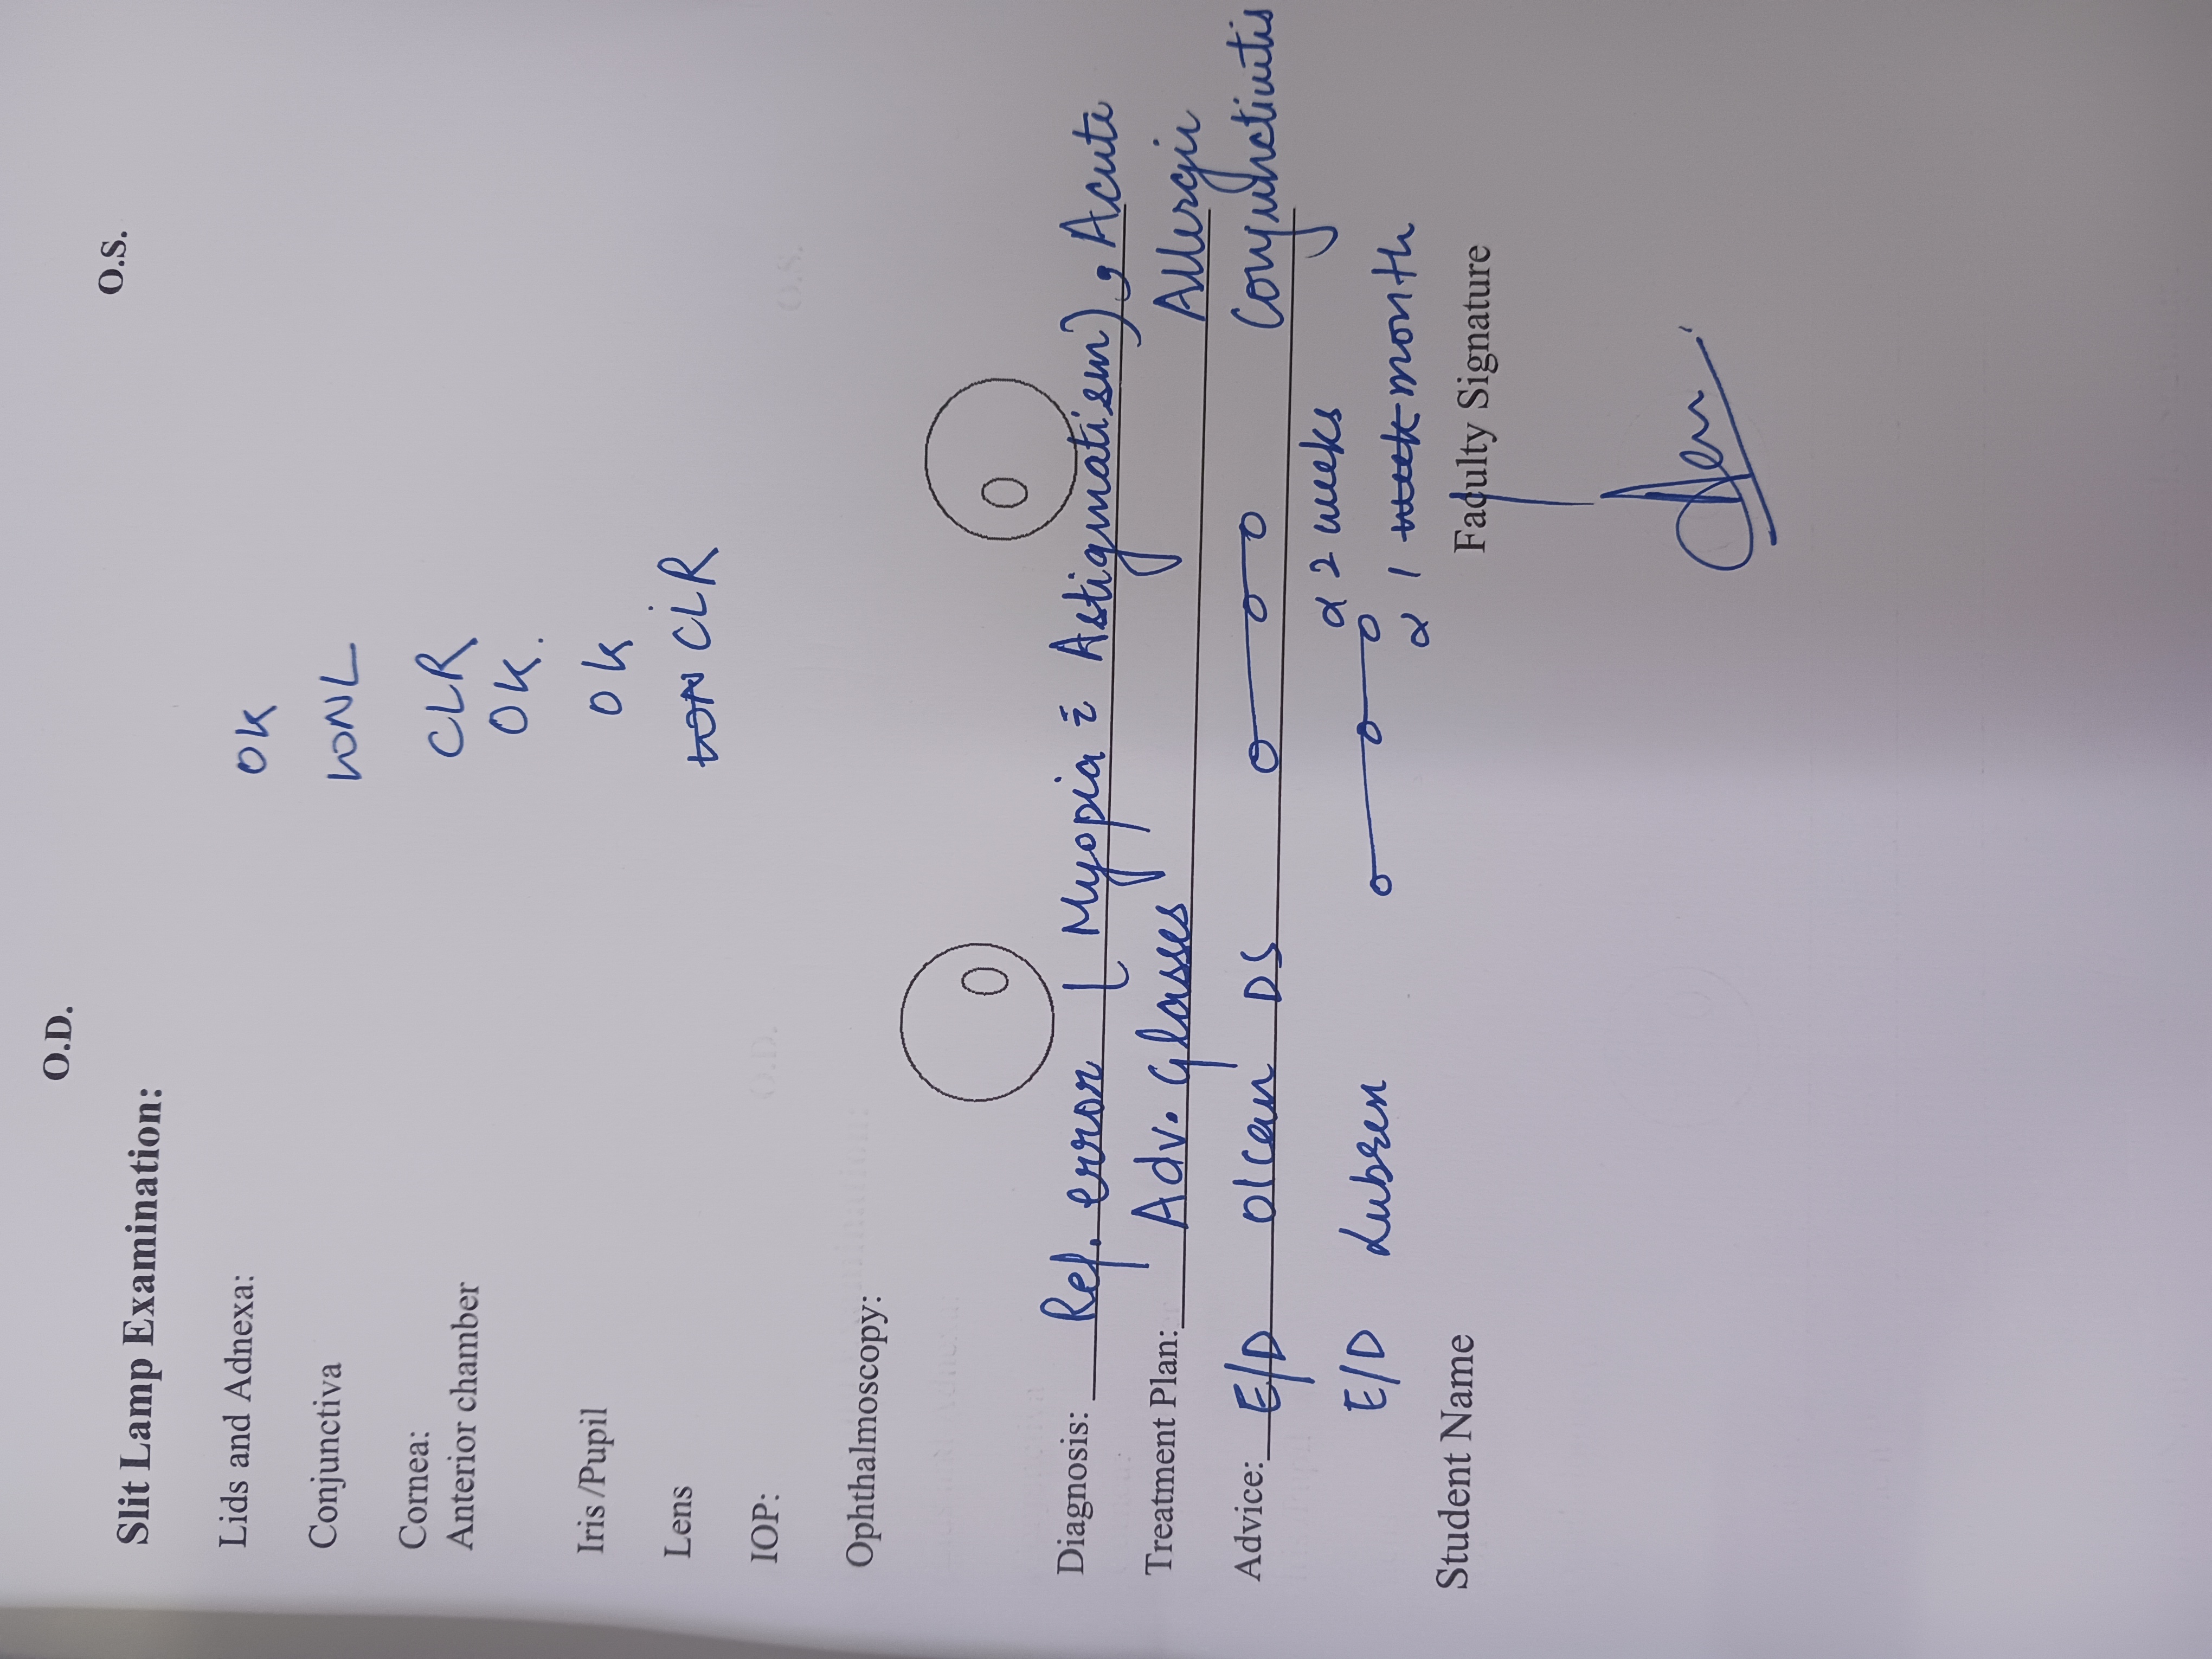 O.D.
O.S.
Slit Lamp Examination:
Lids and Adnexa: OK
Conjunctiva WNL
Cornea: CLR
Anterior chamber OK.
Iris /Pupil OK
Lens CLR
IOP:
Ophthalmoscopy:
Diagnosis: Ref. error ( Myopia c̄ Astigmatism), Acute
Allergic
Conjunctivitis
Treatment Plan: Adv. Glasses
Advice: E/D Olcan DS
x 2 weeks
E/D Lubren
x 1 month
Student Name
Faculty Signature